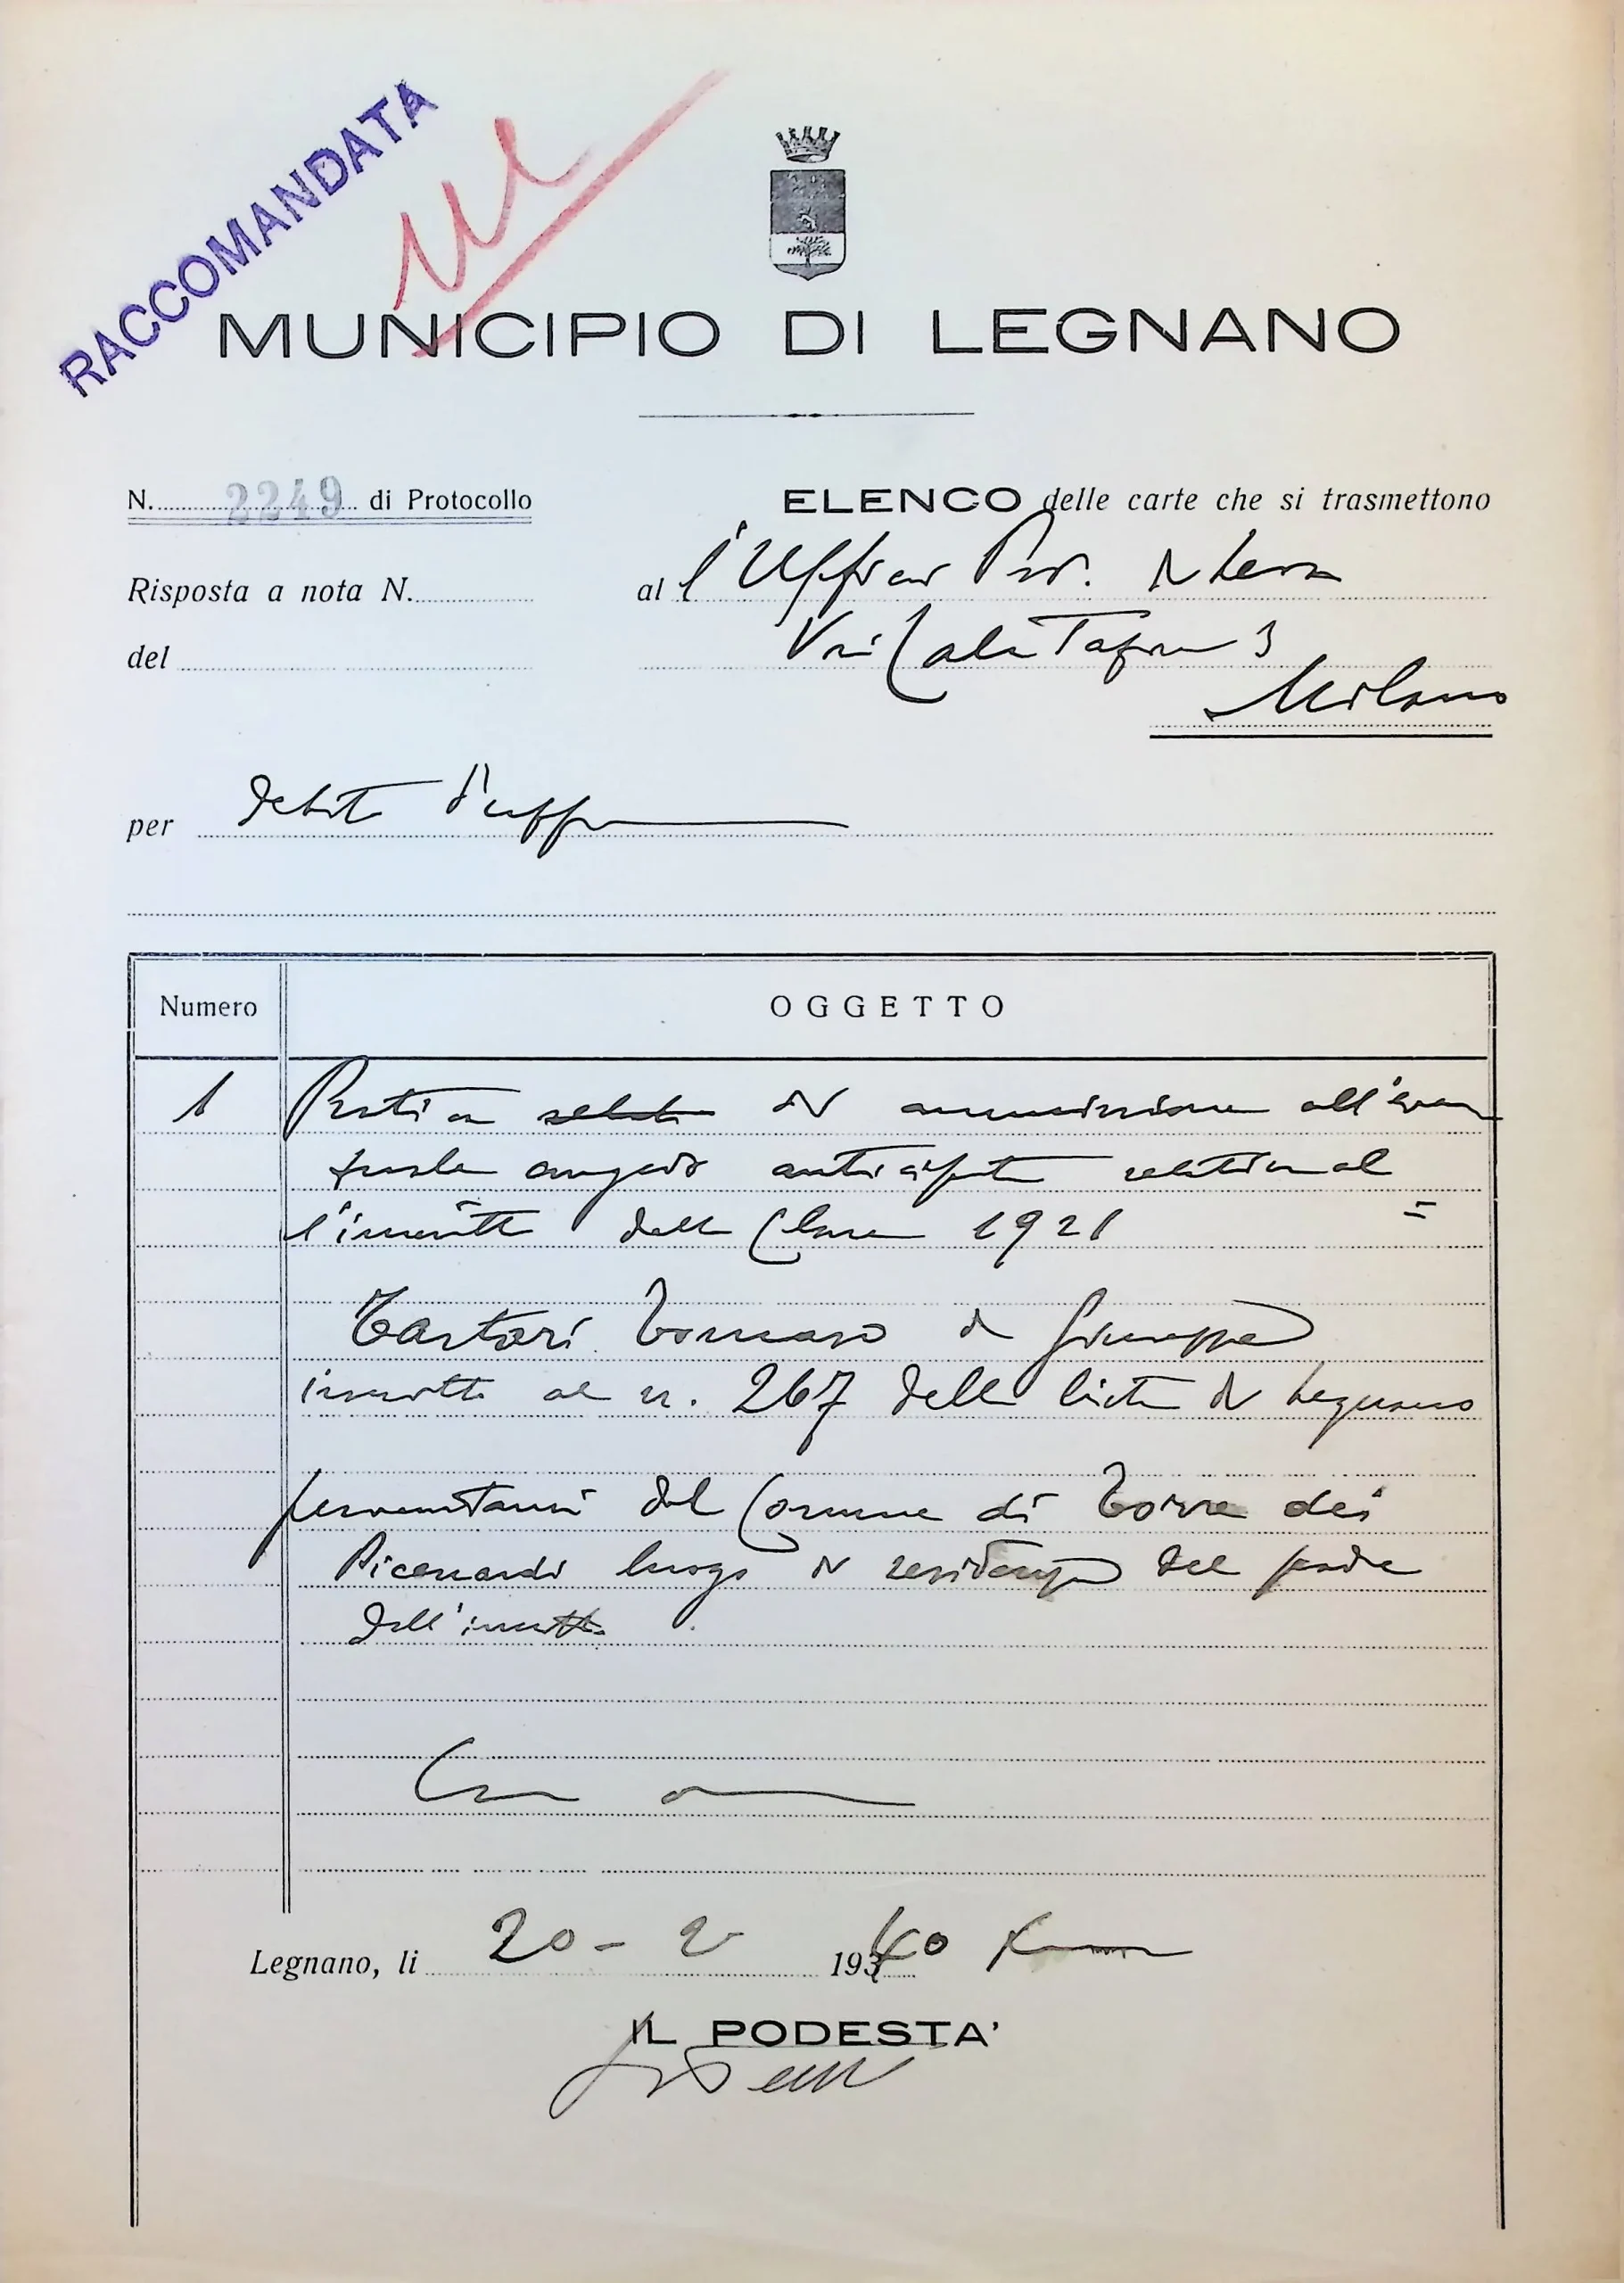 RACCOMANDATA
MUNICIPIO DI LEGNANO
N. 2249 di Protocollo
ELENCO delle carte che si trasmettono
Risposta a nota N.
al l'Ufficio Prov. di Leva
del
Via Calatafimi 3
Milano
per debito d'uff
Numero
OGGETTO
1 Pratica di ammissione all'even
tuale congedo anticipato relativa al
l'inscritto della Classe 1921 =
Tartari Tomaso di Giuseppe
inscritto al n. 267 della lista di Legnano
pervenutami dal Comune di Torre dei
Picenardi luogo di residenza del padre
dell'inscritto
Legnano, li 20 - 2 1940
IL PODESTA'